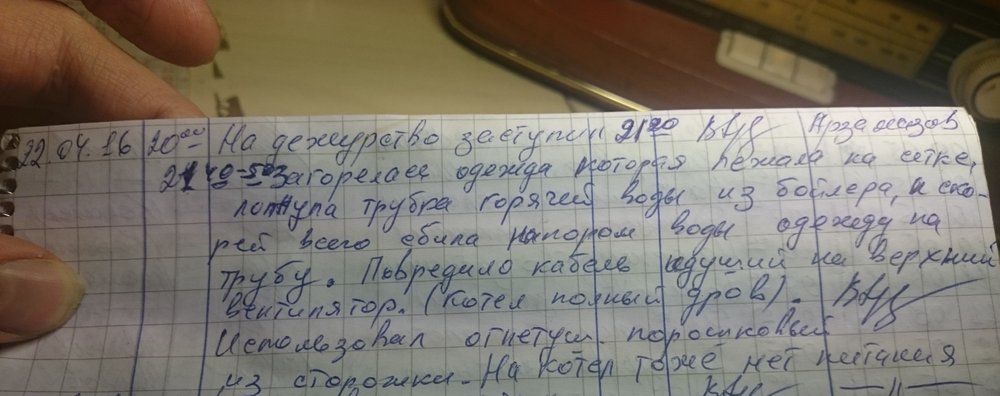 22.04.16 20⁰⁰ На дежурство заступил 21²⁰ Арзамазов
21 40-50 Загорелась одежда которая лежала на сетке,
лопнула трубка горячей воды из бойлера, и ско-
рей всего сбила напором воды одежду на
трубу. Повредило кабель идущий на верхний
вентилятор. (Котел полный дров).
Использовал огнетуш. порошковый
из сторожки. На котел тоже нет питания